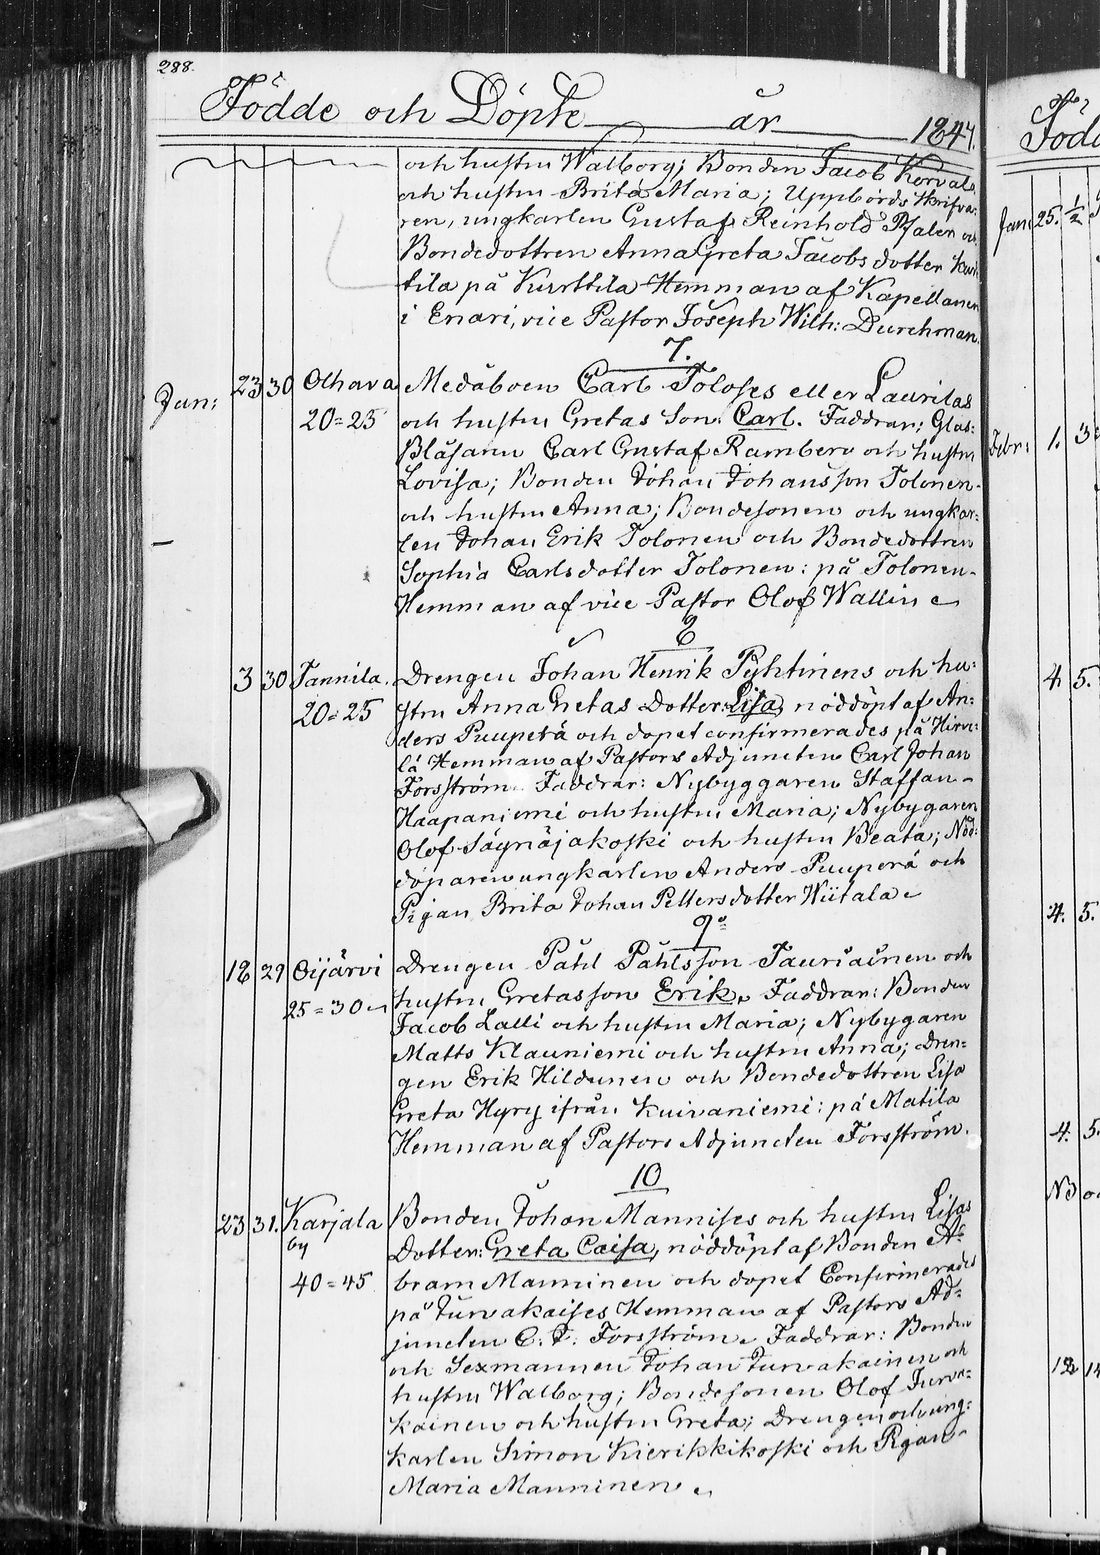 288.
Födde och Döpte år 1847.
och hustru Walborg; Bonden Jacob Korvala
och hustru Brita Maria; Uppbörds Skrifva-
ren, ungkarlen Gustaf Reinhold Pfaler och
Bondedottren Anna Greta Jacobsdotter
tila på Kurttila Hemman af Kapellanen
i Enari, vice Pastor Joseph Wilh: Durchman.
7.
Jun: 23 30 Olhava Medåboen Carl Toloses eller Laurilas
20=25 och hustru Gretas Son: Carl. Faddrar: Glas:
Blåsaren Carl Gustaf Ramberg och hustru
Lovisa; Bonden Johan Johansson Tolonen
och hustru Anna; Bondesonen och ungkar-
len Johan Erik Tolonen och Bondedottren
Sophia Carlsdotter Tolonen: på Tolonen-
Hemman af vice Pastor Olof Wallin
8
3 30 Tannila. Drengen Johan Henrik Pyhtinens och hu-
20=25 stru Anna Gretas Dotter: Lisa, nöddöpt af An-
ders Puuperä och dopet confirmerades på Hirve-
lä Hemman af Pastors Adjuncten Carl Johan
Forsström. Faddrar: Nybyggaren Staffan
Haapaniemi och hustru Maria; Nybygaren
Olof Säynäjäkoski och hustru Beata; Nöd-
döparen ungkarlen Anders Puuperä och
Pigan Brita Johan Pettersdotter Wiitala
9
18 29 Oijärvi Drengen Påhl Påhlsson Tauriainen och
25=30 hustru Gretas son Erik. Faddrar: Bonden
Jacob Lalli och hustru Maria; Nybygaren
Matts Klauniemi och hustru Anna; Dren-
gen Erik Hildunen och Bondedottren Lisa
Greta Hyry ifrån Kuivaniemi: på Matila
Hemman af Pastors Adjuncten Forsström.
10
23 31. Karjala Bonden Johan Mannises och hustru Lisas
by Dotter: Greta Caisa, nöddöpt af Bonden A-
40=45 bram Manninen och dopet Confirmerades
på Turvakaises Hemman af Pastors Ad-
juncten C. J. Forsström. Faddrar: Bonden
och Sexmannen Johan Turvakainen och
hustru Walborg; Bondesonen Olof Turva-
kainen och hustru Greta; Drengen och ung-
karlen Simon Kierikkikoski och Pigan
Maria Manninen
Föd
Jan: 25. 1/2
Febr: 1. 3
4. 5.
4. 5.
4. 5.
No
12 14